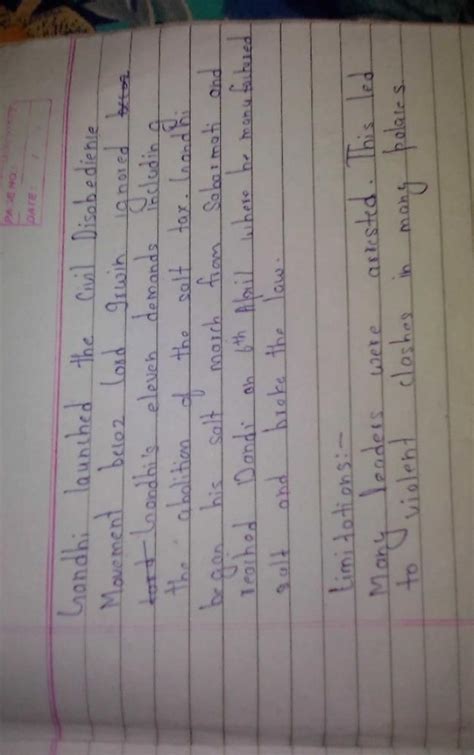 PAGE NO.:
DATE: / /
Gandhi launched the Civil Disobedience
Movement becoz Lord Irwin ignored becoz
Lord Gandhi's eleven demands including
the abolition of the salt tax. Gandhi
began his salt march from Sabarmati and
reached Dandi on 6th April where he manufactured
salt and broke the law.
Limitations:-
Many leaders were arrested. This led
to violent clashes in many palaces.